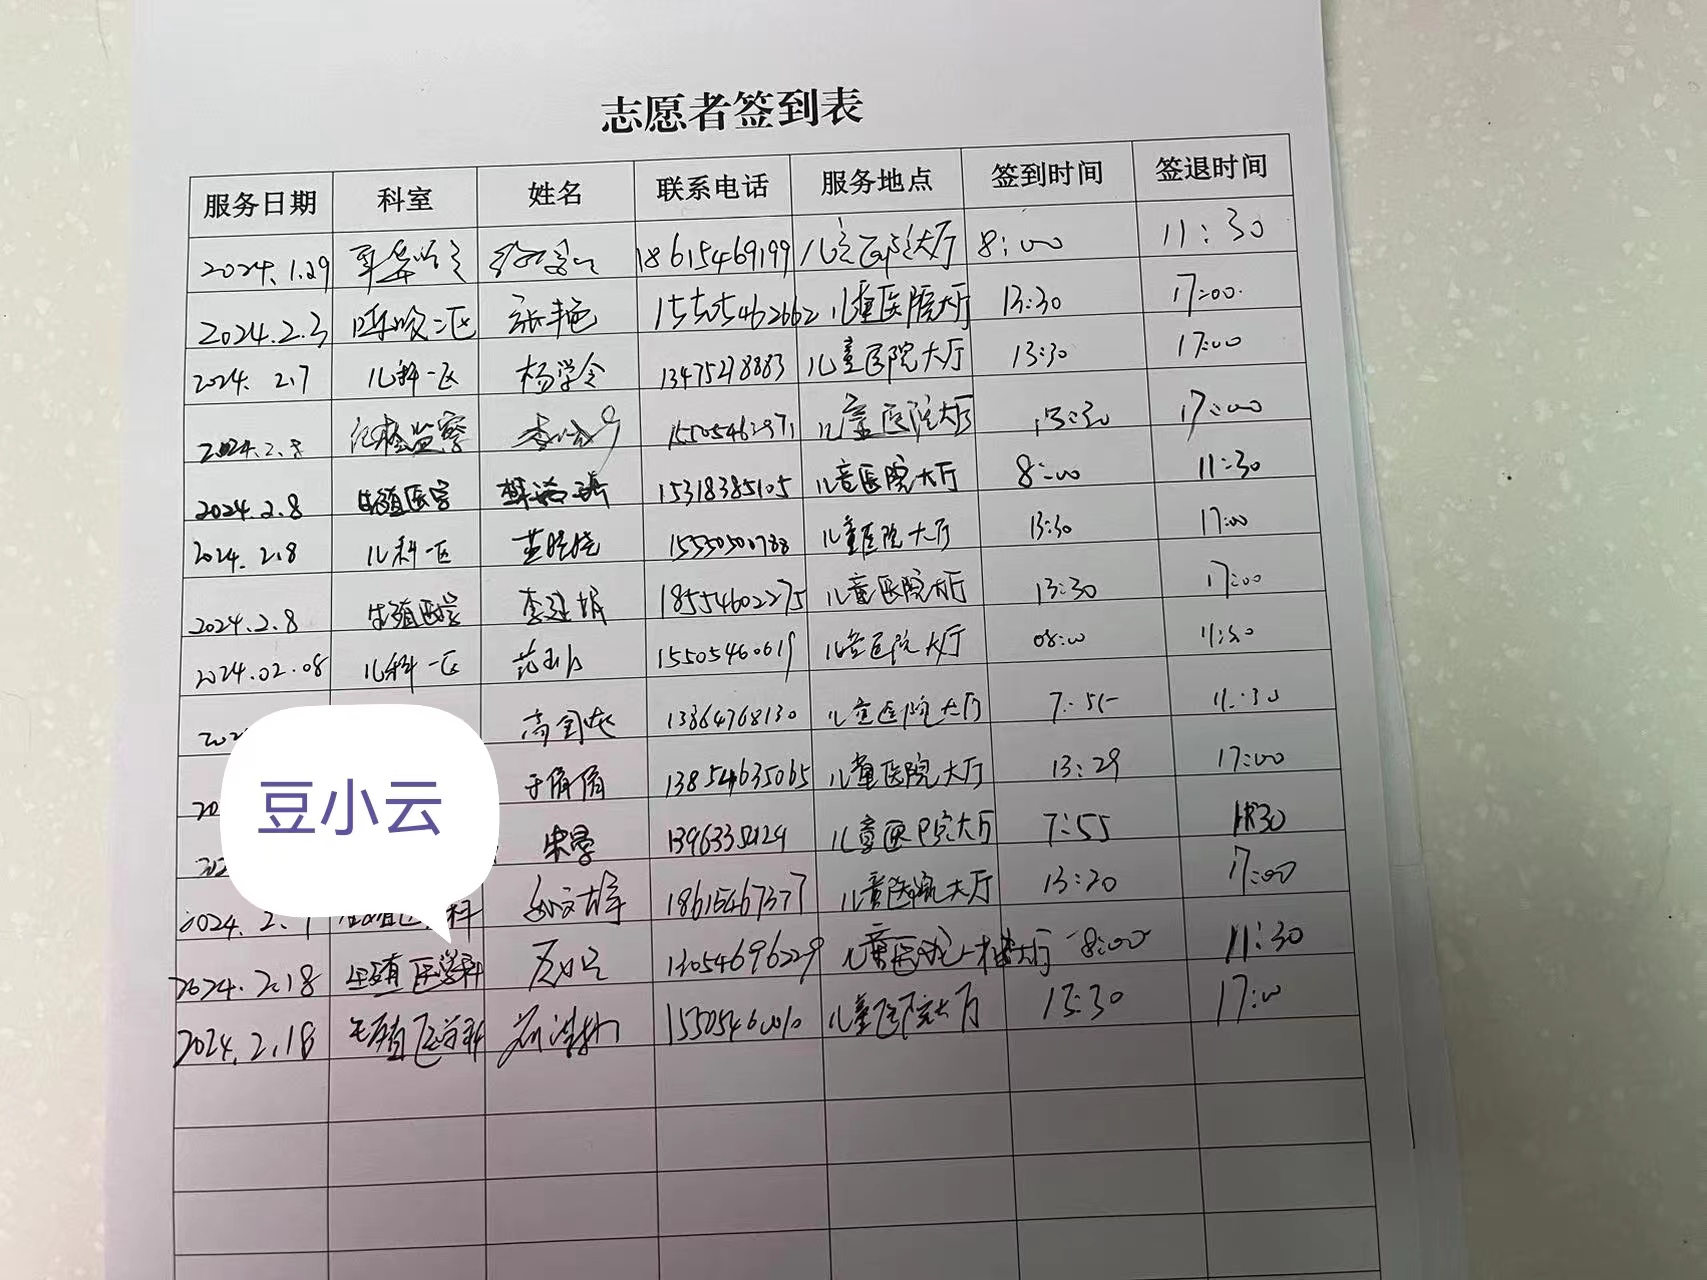 志愿者签到表
服务日期 科室 姓名 联系电话 服务地点 签到时间 签退时间
2024.1.29 18615469199 大厅 8:00 11:30
2024.2.3 呼吸二区 张艳 15505462662 儿童医院大厅 13:30 17:00
2024.2.7 儿科一区 杨学令 13475218883 儿童医院大厅 13:30 17:00
2024.2.8 纪检监察 儿童医院大厅 13:30 17:00
2024.2.8 生殖医学 15318385105 儿童医院大厅 8:00 11:30
2024.2.8 儿科一区 15550500788 儿童医院大厅 13:30 17:00
2024.2.8 生殖医学 18554602275 儿童医院大厅 13:30 17:00
2024.02.08 儿科一区 15505460619 儿童医院大厅 08:00 11:30
13864768130 儿童医院大厅 7:55 11:30
于倩倩 13854635065 儿童医院大厅 13:29 17:00
儿童医院大厅 7:55 11:30
2024.2. 科 18615467377 儿童医院大厅 13:20 17:00
2024.2.18 生殖医学科 13054696229 儿童医院一楼大厅 8:00 11:30
2024.2.18 生殖医学科 儿童医院大厅 13:30 17:00
豆小云